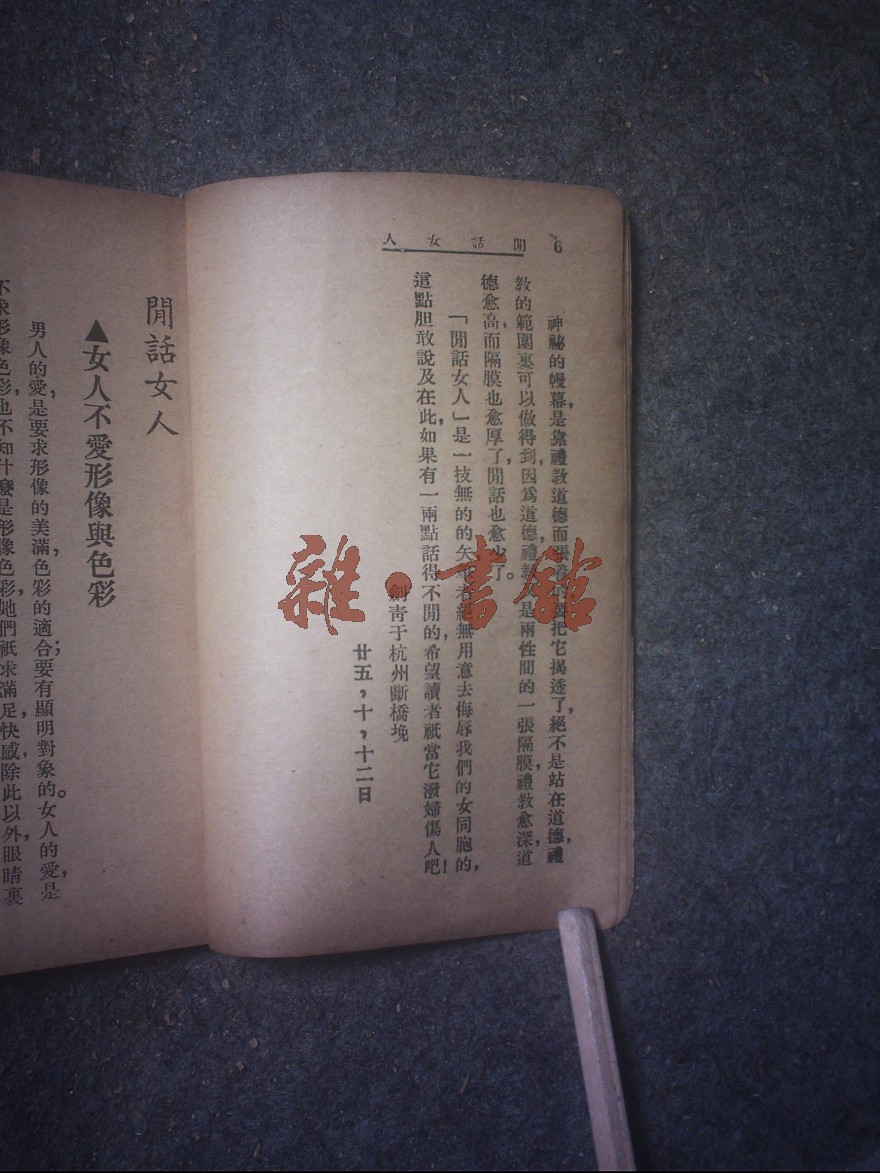 6 閒話女人
神祕的幔幕，是靠禮教道德而張 的 把它揭透了，絕不是站在道德，禮
教的範圍裏可以做得到，因爲道德禮教，是兩性間的一張隔膜，禮教愈深，道
德愈高，而隔膜也愈厚了，閒話也愈少了。
「閒話女人」是一技無的的矢，著者絕無用意去侮辱我們的女同胞的，
這點胆敢說及在此，如果有一兩點話得不閒的，希望讀者祇當它潑婦傷人吧！
劍靑于杭州斷橋堍
廿五，十，十二日
閒話女人
▲女人不愛形像與色彩
男人的愛，是要求形像的美滿，色彩的適合；要有顯明對象的。女人的愛，是
不求形像色彩，也不知什麼是形像色彩，她們祇求滿足快感，除此以外，眼睛裏
雜·書館